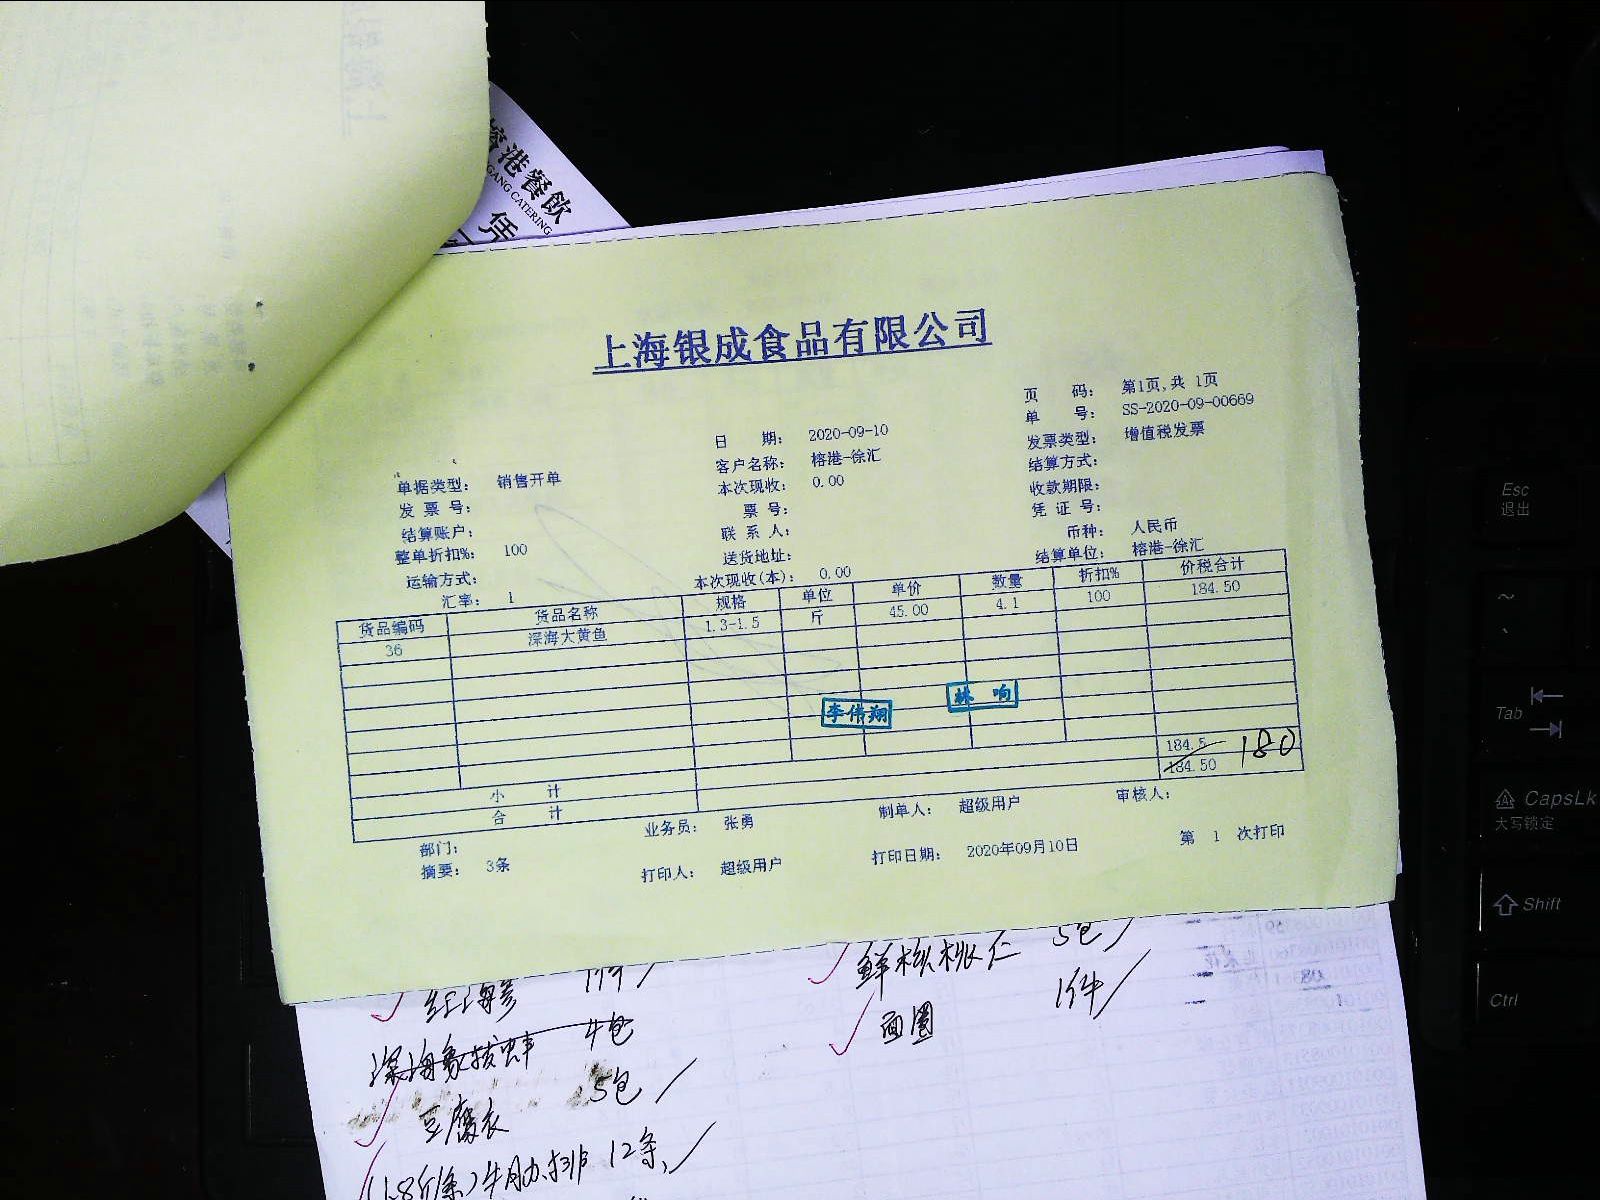 港餐飲
GANG CATERING
凭
上海银成食品有限公司
页 码： 第1页,共 1页
单 号： SS-2020-09-00669
日 期： 2020-09-10 发票类型： 增值税发票
单据类型： 销售开单 客户名称： 榕港-徐汇 结算方式：
发 票 号： 本次现收： 0.00 收款期限：
结算账户： 票 号： 凭 证 号：
整单折扣%： 100 联 系 人： 币种： 人民币
运输方式： 送货地址： 结算单位： 榕港-徐汇
汇率： 1 本次现收(本)： 0.00
货品编码 货品名称 规格 单位 单价 数量 折扣% 价税合计
36 深海大黄鱼 1.3-1.5 斤 45.00 4.1 100 184.50
李伟翔 林 响
小 计 184.5
合 计 184.50 180
部门： 业务员： 张勇 制单人： 超级用户 审核人：
摘要： 3条 打印人： 超级用户 打印日期： 2020年09月10日 第 1 次打印
红海参 1件 鲜核桃仁 5包
深海象拔蚌 4包 面圈 1件
豆腐衣 5包
牛肋排 12条
Esc
退出
Tab
CapsLk
大写锁定
Shift
Ctrl